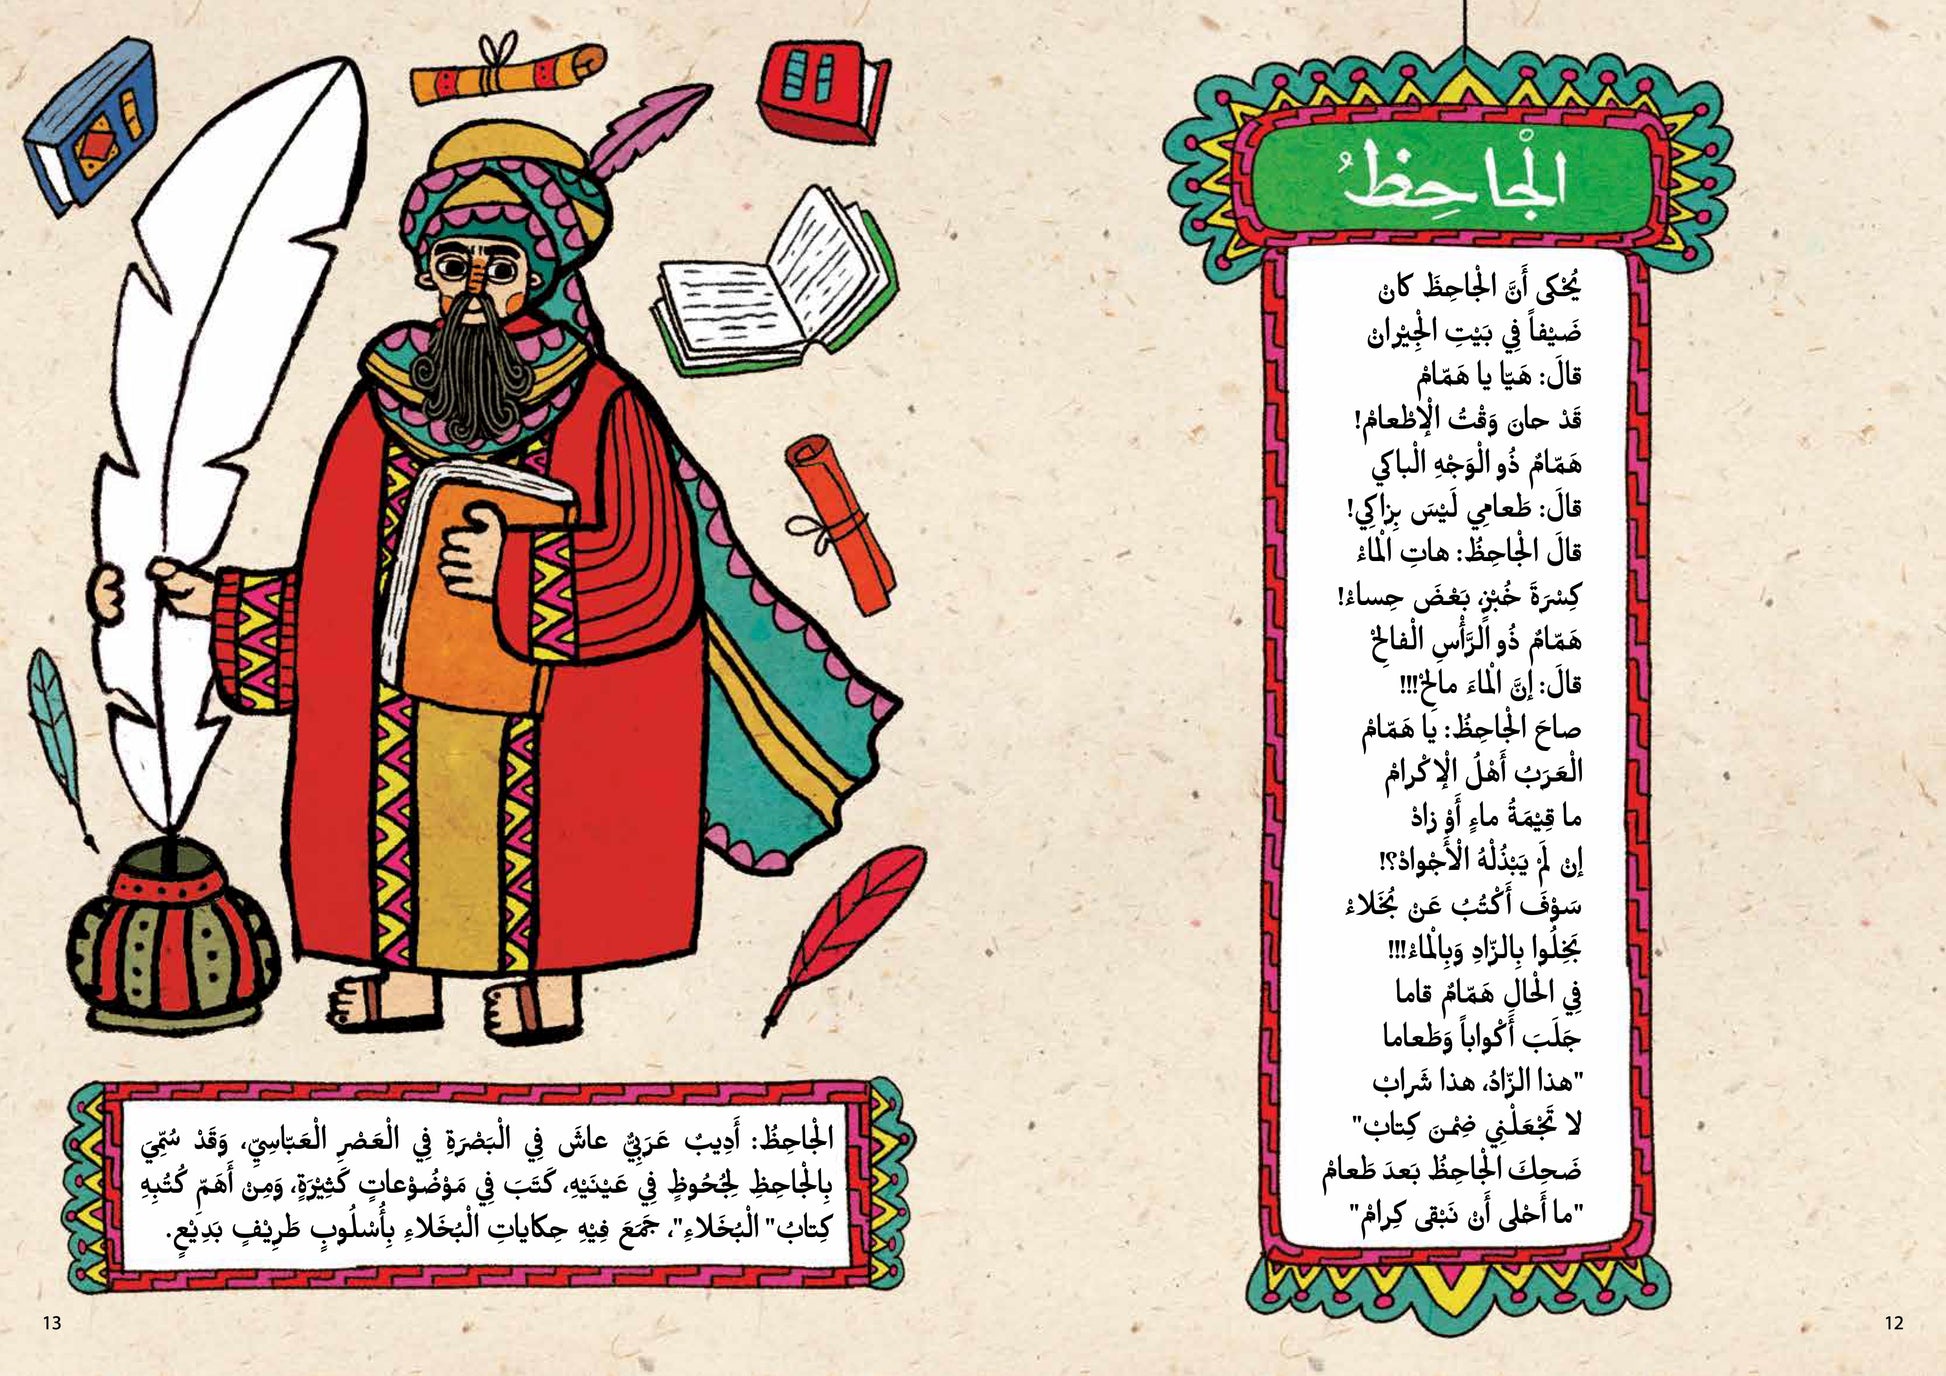 الْجاحِظُ
يُحْكى أَنَّ الْجاحِظَ كانْ
ضَيْفاً فِي بَيْتِ الْجِيْرانْ
قالَ: هَيّا يا هَمّامْ
قَدْ حانَ وَقْتُ الْإطْعامْ!
هَمّامٌ ذُو الْوَجْهِ الْباكي
قالَ: طَعامِي لَيْسَ بِزاكِي!
قالَ الْجاحِظُ: هاتِ الْماءْ
كِسْرَةَ خُبْزٍ، بَعْضَ حِساءْ!
هَمّامٌ ذُو الرَّأْسِ الْفالِحْ
قالَ: إنَّ الْماءَ مالِحْ!!!
صاحَ الْجاحِظُ: يا هَمّامْ
الْعَرَبُ أَهْلُ الْإكْرامْ
ما قِيْمَةُ ماءٍ أَوْ زادْ
إنْ لَمْ يَبْذُلْهُ الْأَجْوادْ؟!
سَوْفَ أَكْتُبُ عَنْ بُخَلاءْ
بَخِلُوا بِالزّادِ وَبِالْماءْ!!!
فِي الْحالِ هَمّامٌ قاما
جَلَبَ أَكْواباً وَطَعاما
"هذا الزّادُ، هذا شَرابْ
لا تَجْعَلْنِي ضِمْنَ كِتابْ"
ضَحِكَ الْجاحِظُ بَعدَ طَعامْ
"ما أَحْلى أَنْ نَبْقى كِرامْ"
12
الْجاحِظُ: أَدِيبٌ عَرَبِيٌّ عاشَ فِي الْبَصْرَةِ فِي الْعَصْرِ الْعَبّاسِيِّ، وَقَدْ سُمِّيَ
بِالْجاحِظِ لِجُحُوظٍ فِي عَيْنَيْهِ، كَتَبَ فِي مَوْضُوْعاتٍ كَثِيْرَةٍ، وَمِنْ أَهَمِّ كُتُبِهِ
كِتابُ" الْبُخَلاءِ"، جَمَعَ فِيْهِ حِكاياتِ الْبُخَلاءِ بِأُسْلُوبٍ طَرِيْفٍ بَدِيْعٍ.
13